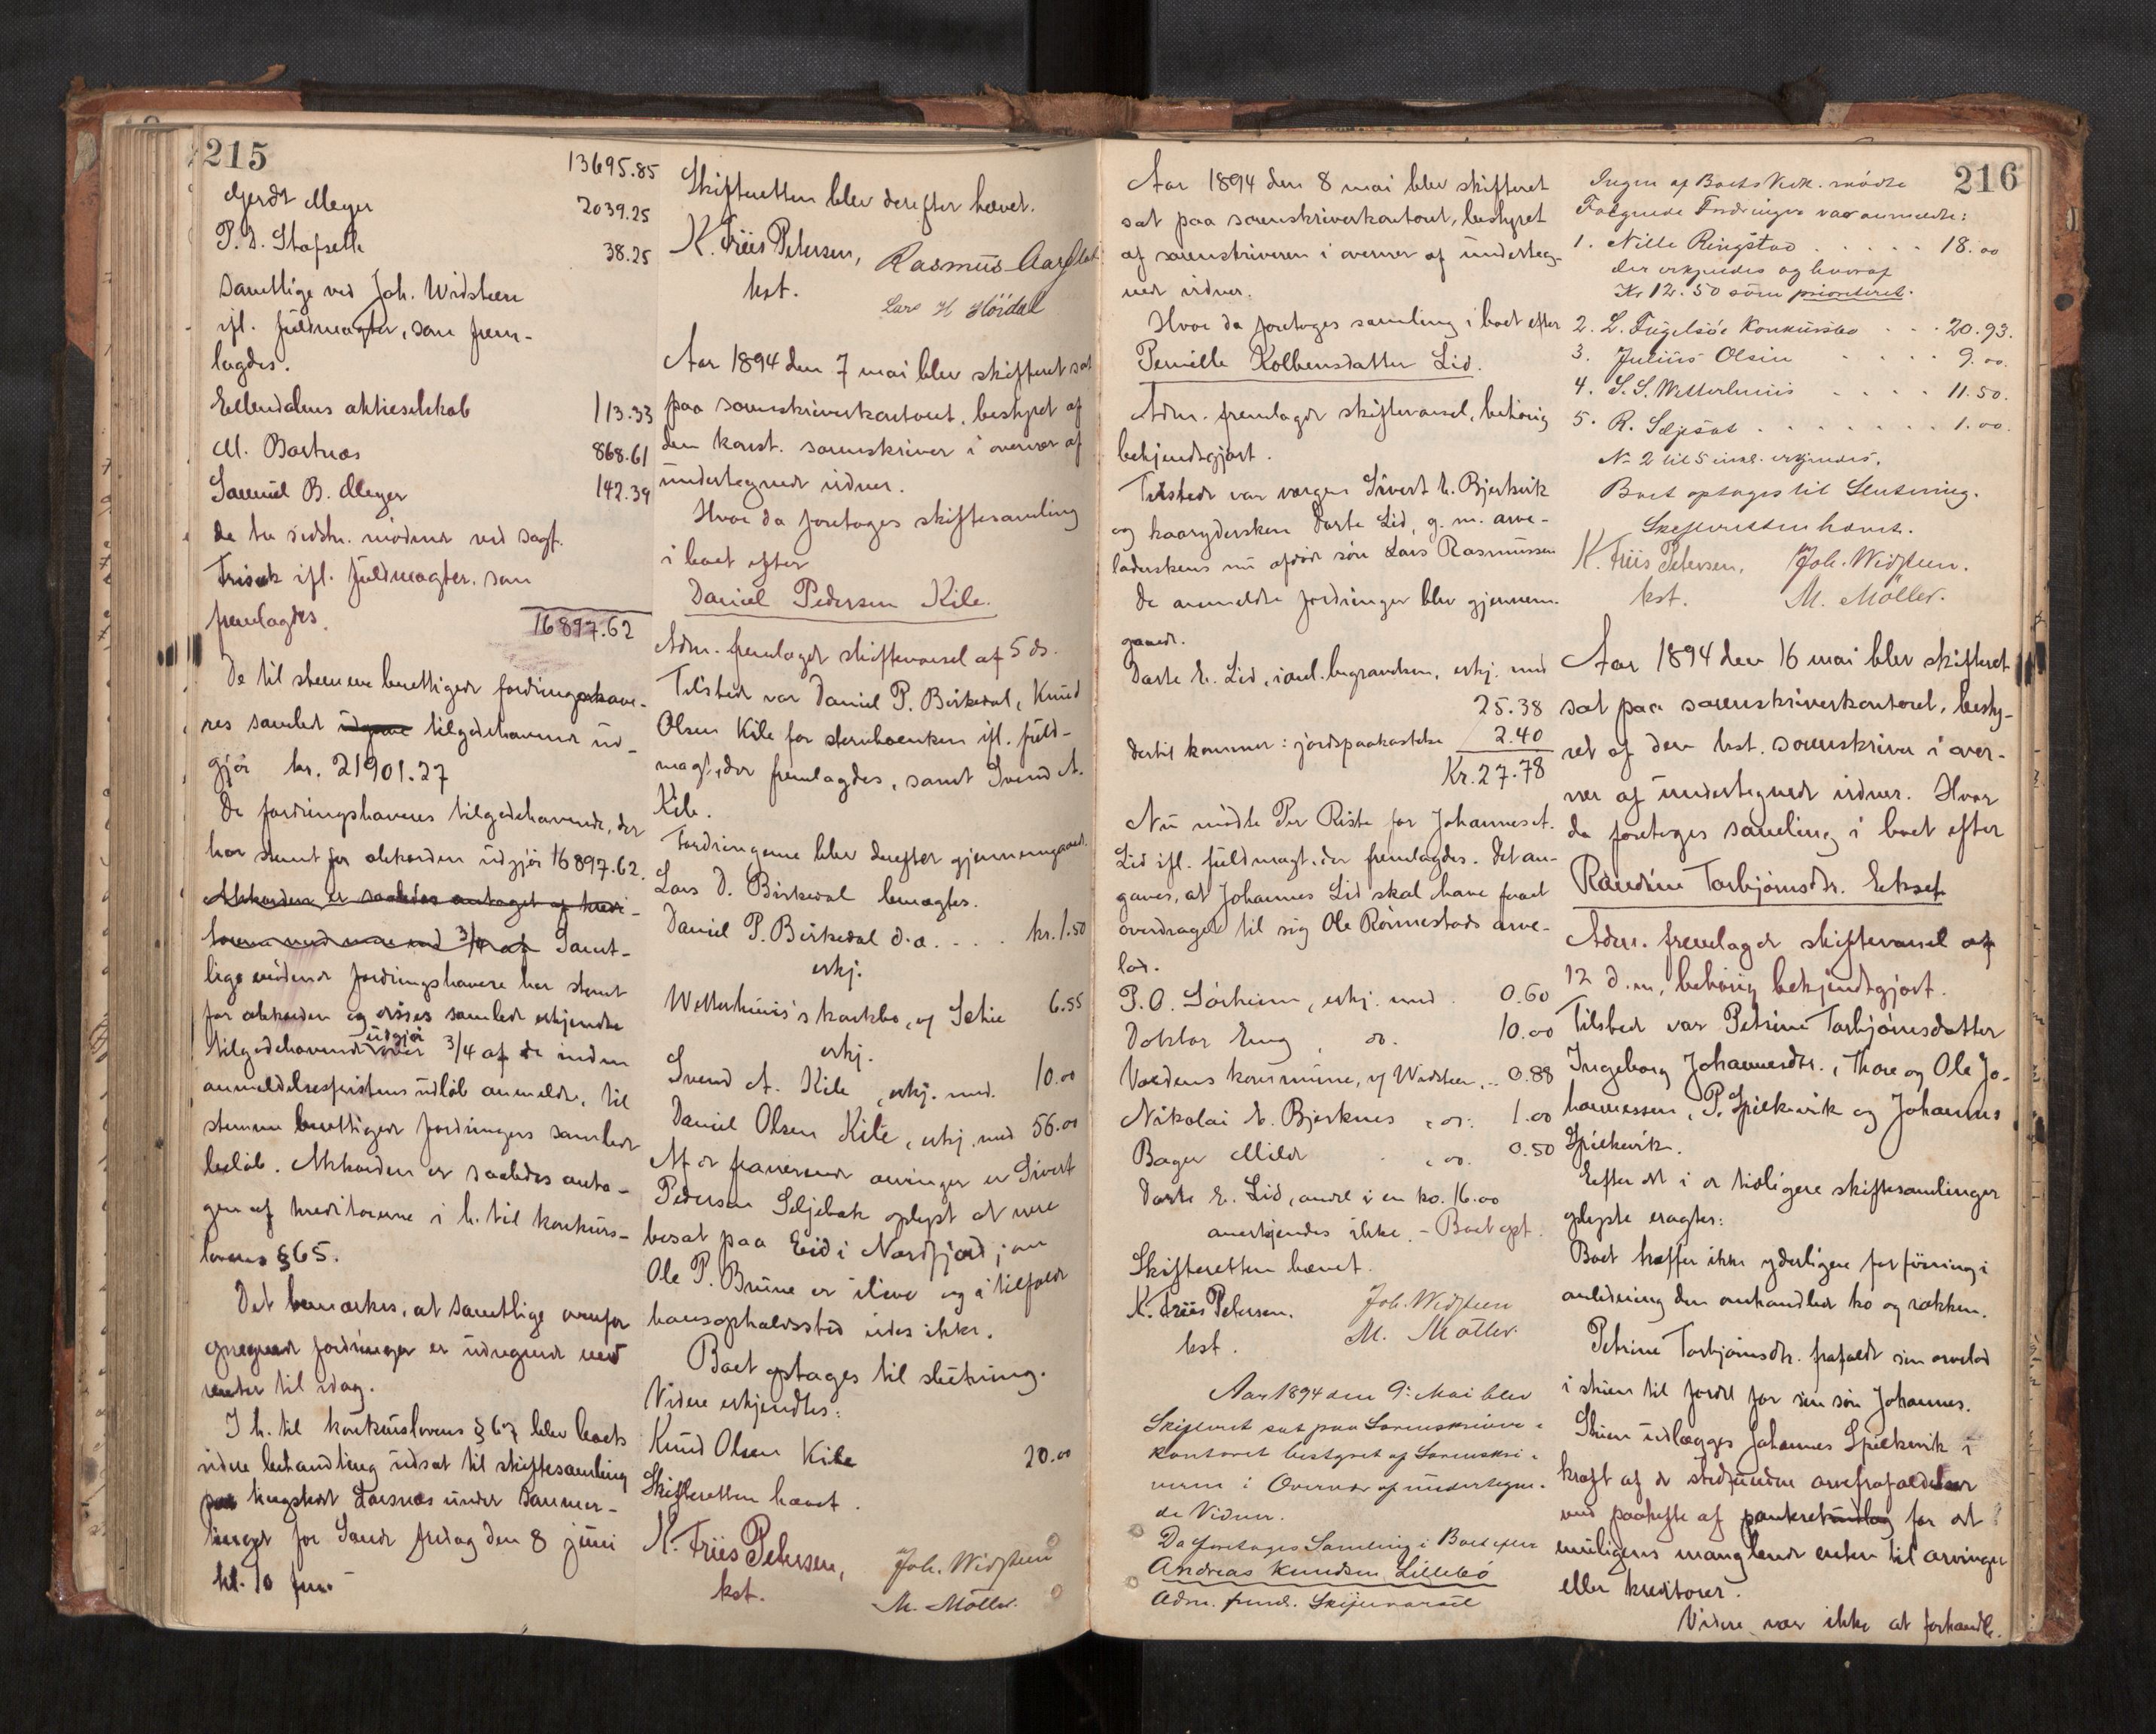 215
13695.85
Gerdt Meyer 2039.25
P. D. Stafseth 38.25
Samtlige ved Joh. Widsteen
ifl. fuldmagter, som frem-
lagdes.
Eellendalens aktieselskab 113.33
M. Bartnæs 868.61
Samuel B. Meyer 142.39
de to sidstn. mødende ved sagf.
Frisak ifl. fuldmagter, som
fremlagdes.
16897.62
De til stemme berettigede fordringshave-
res samlet udgave tilgodehavende ud-
gjør kr. 21901.27
De fordringshaveres tilgodehavende, der
har stemt for akkorden udgjør 16897.62.
Akkorden er saaledes antaget af kredi-
torerne med mere end 3/4 af Samt-
lige mødende fordringshavere har stemt
for akkorden og disses samlede erkjendte
tilgodehavende udgjør over 3/4 af de inden
anmeldelsesfristens udløb anmeldte, til
stemme berettigede fordringers samlede
beløb. Akkorden er saaledes anta-
gen af kreditorerne i h. til konkurs-
lovens § 65.
Det bemærkes, at samtlige ovenfor
opregnede fordringer er udregnede med
renter til idag.
I h. til konkurslovens § 67 blev boets
videre behandling udsat til skiftesamling
paa tingstedet Larsnes under sommer-
tinget for Sande fredag den 8 juni
kl. 10 fm.
Skifteretten blev derefter hævet.
K. Friis Petersen, Rasmus Aarflot
kst. Lars H Hördal
Aar 1894 den 7 mai blev skifteret sat
paa sorenskriverkontoret, bestyret af
den konst. sorenskriver i overvær af
undertegnede vidner.
Hvor da foretoges skiftesamling
i boet efter
Daniel Pedersen Kile.
Adm. fremlagde skiftevarsel af 5 ds.
Tilstede var Daniel P. Birkedal, Knud
Olsen Kile for sterboenken ifl. fuld-
magt, der fremlagdes, samt Svend A.
Kile.
Fordringerne blev derefter gjennemgaaet.
Lars D. Birkedal benægtes.
Daniel P. Birkedal d.a. . . . kr. 1.50
erkj.
Wetterhuus's konkbo, v/ Sehie 6.55
erkj.
Svend A. Kile , erkj. med. 10.00
Daniel Olsen Kile, erkj. med 56.00
Af de fraværende arvinger er Sivert
Pedersen Seljebak oplyst at være
bosat paa Eid i Nordfjord; om
Ole P. Brune er ilive og i tilfælde
hans opholdssted vides ikke.
Boet optages til slutning.
Videre erkjendtes:
Knud Olsen Kile 20.00
Skifteretten hævet.
K. Friis Petersen, Joh. Widsteen
kst. M. Möller.
216
Aar 1894 den 8 mai blev skifteret
sat paa sorenskriverkontoret, bestyret
af sorenskriveren i overvær af underteg-
nede vidner.
Hvor da foretoges samling i boet efter
Pernille Kolbensdatter Lid.
Adm. fremlagde skiftevarsel, behørig
bekjendtgjort.
Tilstede var vergen Sivert E. Bjerkvik
og kaarydersken Dorte Lid, g. m. arve-
laderskens nu afdøde søn Lars Rasmussen
De anmeldte fordringer blev gjennem-
gaaede.
Dorte E. Lid, i anl. begravelsen, erkj. med
25.38
dertil kommer: jordspaakastelse 2.40
Kr. 27.78
Nu mødte Per Riste for Johannes A.
Lid ifl. fuldmagt, der fremlagdes. Det an-
gaves, at Johannes Lid skal have faaet
overdraget til sig Ole Rönnestads arve-
lod.
P. O. Sörheim, erkj. med . 0.60
Doktor Eng , do. 10.00
Voldens kommune, v/ Widsteen, .. 0.88
Nikolai E. Bjerknes , do: 1.00
Bager Milde . , do. 0.50
Dorte E. Lid, andel i en ko. 16.00
anerkjendes ikke. - Boet opt.
Skifteretten hævet.
K. Friis Petersen. Joh. Widsteen
kst. M. Möller.
Aar 1894 den 9: Mai blev
Skifteret sat paa Sorenskriver-
kontoret bestyret af Sorenskri-
veren i Overvær af undertegne-
de Vidner.
Da foretoges Samling i Boet efter
Andreas Knudsen Lillebö
Adm. freml. Skiftevarsel
Ingen af Boets Vedk. mödte
Følgende Fordringer var anmeldte:
1. Nille Ringstad . . . . . 18.00
der erkjendes og hvoraf
Kr 12.50 som prioriteret.
2. L. Fugelsöe Konkursbo . . . 20.93.
3. Julius Olsen . . . . 9.00.
4. S. S. Wetterhuus . . . . 11.50.
5. R. Seljesat . . . . . . . 1.00.
No 2 til 5 inkl. erkjendes.
Boet optages til Slutning.
Skifteretten hævet.
K. Friis Petersen. Joh. Widsteen.
kst. M. Möller.
Aar 1894 den 16 mai blev skifteret
sat paa sorenskriverkontoret, besty-
ret af den kst. sorenskriver i over-
vær af undertegnede vidner. Hvor
da foretoges samling i boet efter
Randine Torbjørnsdtr. Ekset
Adm. fremlagde skiftevarsel af
12 d. m., behørig bekjendtgjort.
Tilstede var Petrine Torbjørnsdatter
Ingeborg Johannesdtr., Thore og Ole Jo-
hannessen, P. Spilkevik og Johannes
Spilkevik.
Efter det i de tidligere skiftesamlinger
oplyste eragtes:
Boet træffer ikke yderligere forføining i
anledning den omhandlede ko og rokken.
Petrine Torbjørnsdtr. frafaldt sin arvelod
i skiens til fordel for sin søn Johannes.
Skien udlægges Johannes Spilkevik i
kraft af de stedfundne arvefrafaldelser
med paahefte af panteretundlag for det
muligens manglende enten til arvinger
eller kreditorer.
Videre var ikke at forhandle.